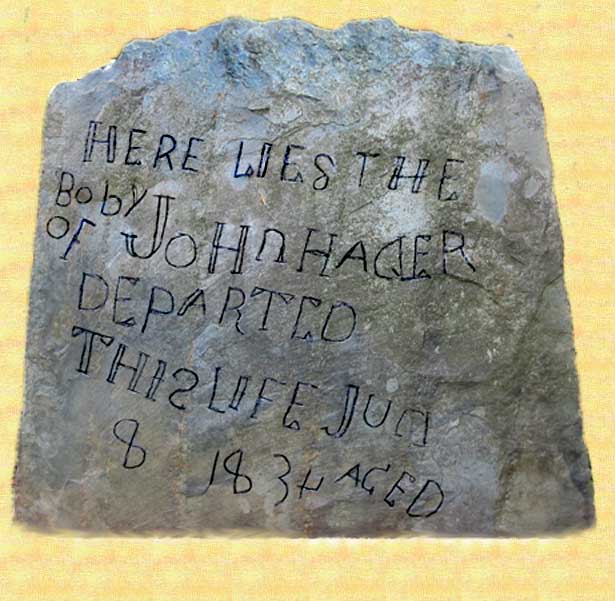 HERE LIES THE
BobY
OF JOHn HAGER
DEPARTED
THIS LIFE JUn
8 1834 AGED